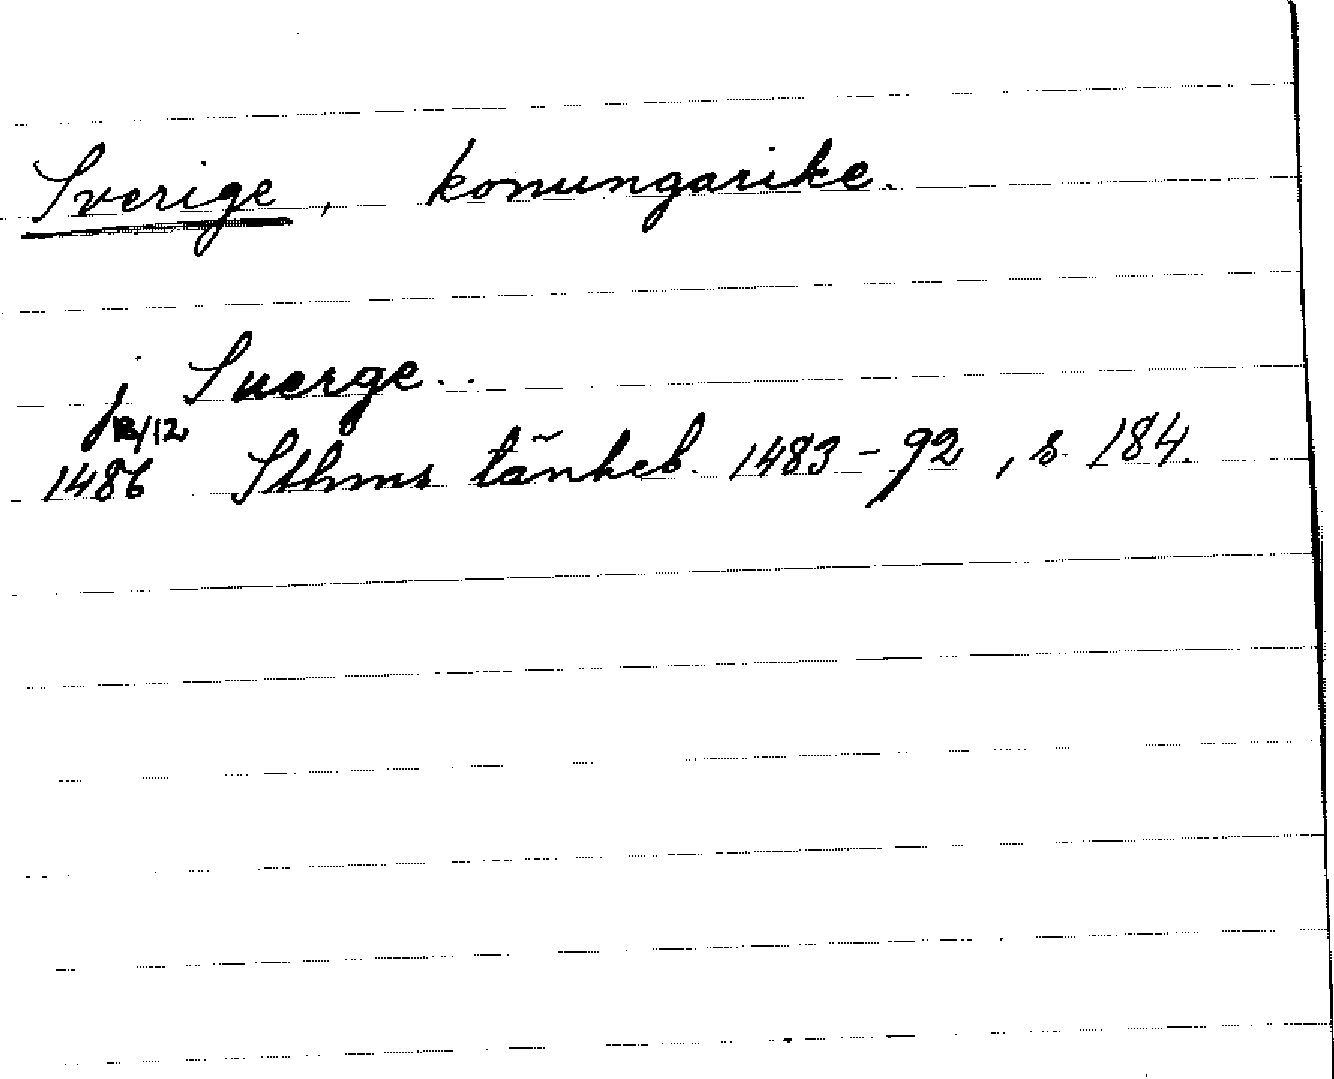 Sverige, konungarike.
j Suerge..
13/12
1486 Sthms tänkeb. 1483-92, s 184.